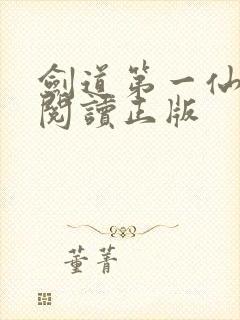 劍道第一仙
閱讀正版
董菁